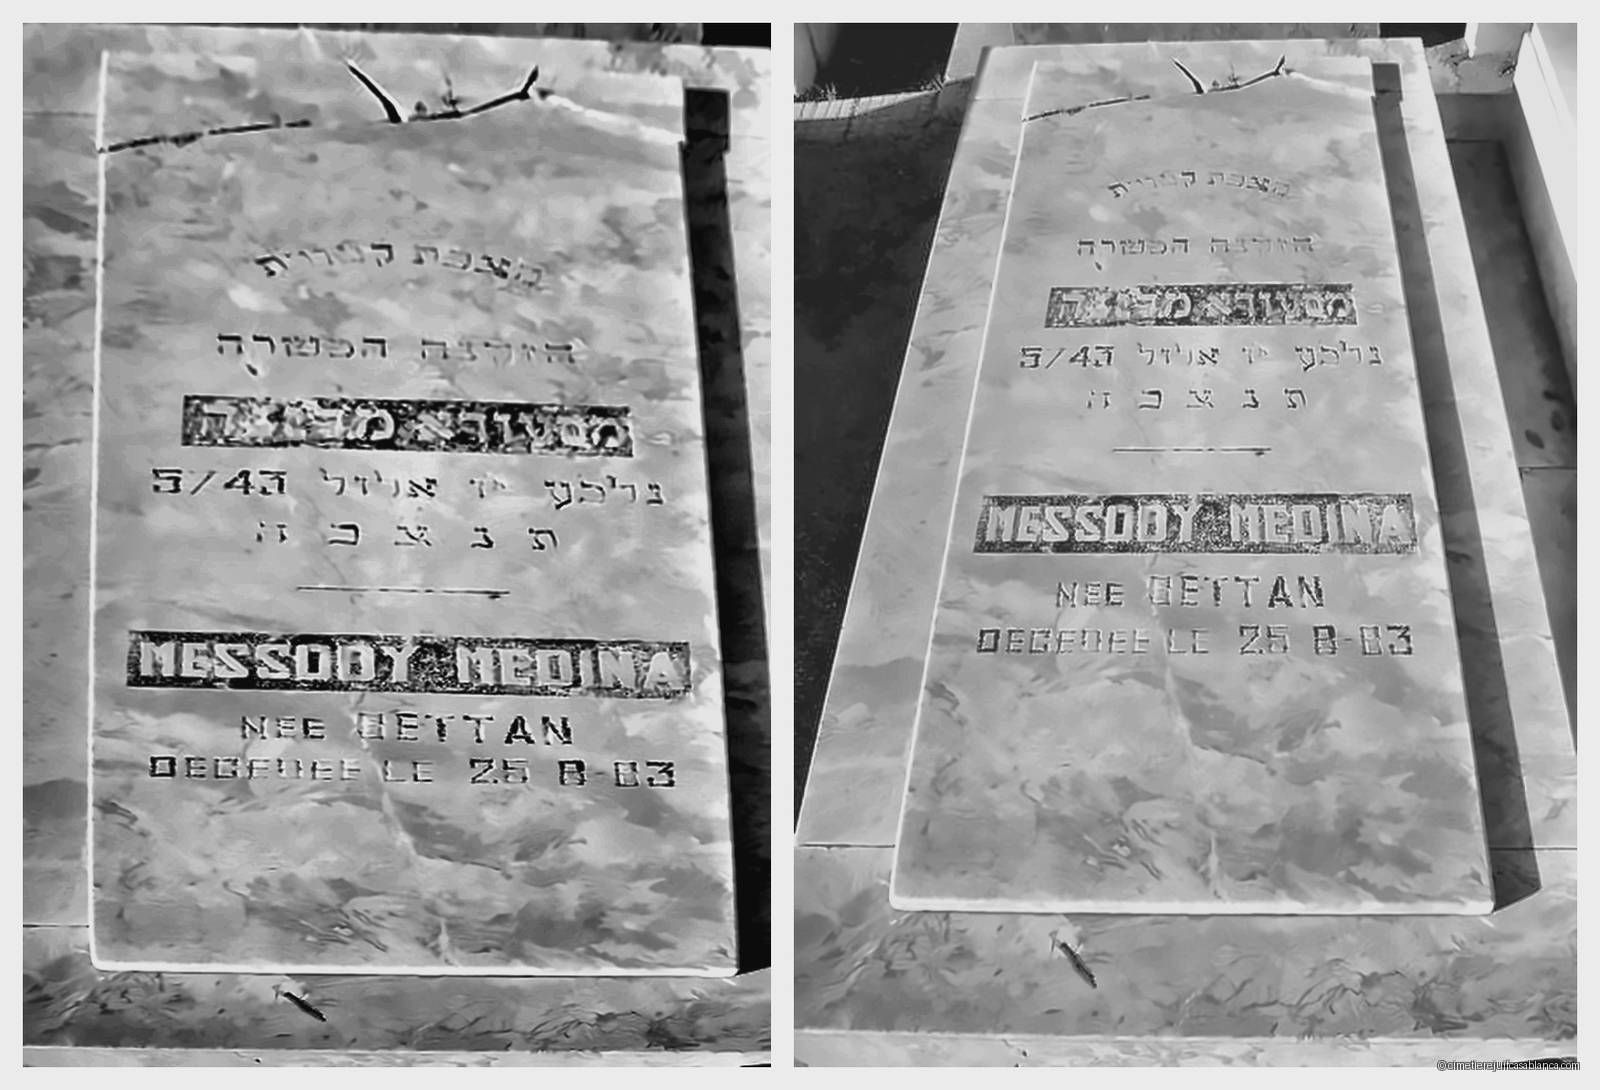 מצבת קבורת
הזקנה הכשרה
מסעודא מדינא
נלב׳ע יז אלול 5743
ת נ צ ב ה
MESSODY MEDINA
NEE BETTAN
DECEDEE LE 25 8-83
מצבת קבורת
הזקנה הכשרה
מסעודא מדינא
נלב׳ע יז אלול 5743
ת נ צ ב ה
MESSODY MEDINA
NEE BETTAN
DECEDEE LE 25 8-83
@cimetierejuifcasablanca.com